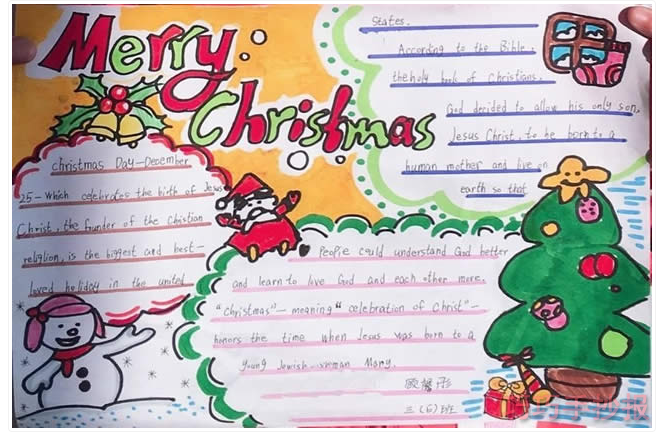 Merry
Christmas
christmas Day—December
25—Which celebrates the birth of Jesus
Christ, the funder of the Chistian
religion, is the biggest and best—
loved holiday in the united
States.
According to the Bible,
theholy book of Christians.
God decided to allow his only son,
Jesus Christ, to he born to a
human mother and live on
earth so that
People could understand God better
and learn to love God and each other more.
"Christmas"—meaning "celebration of Christ"—
honors the time when Jesus was born to a
young Jewish woman Mary.
三(6)班